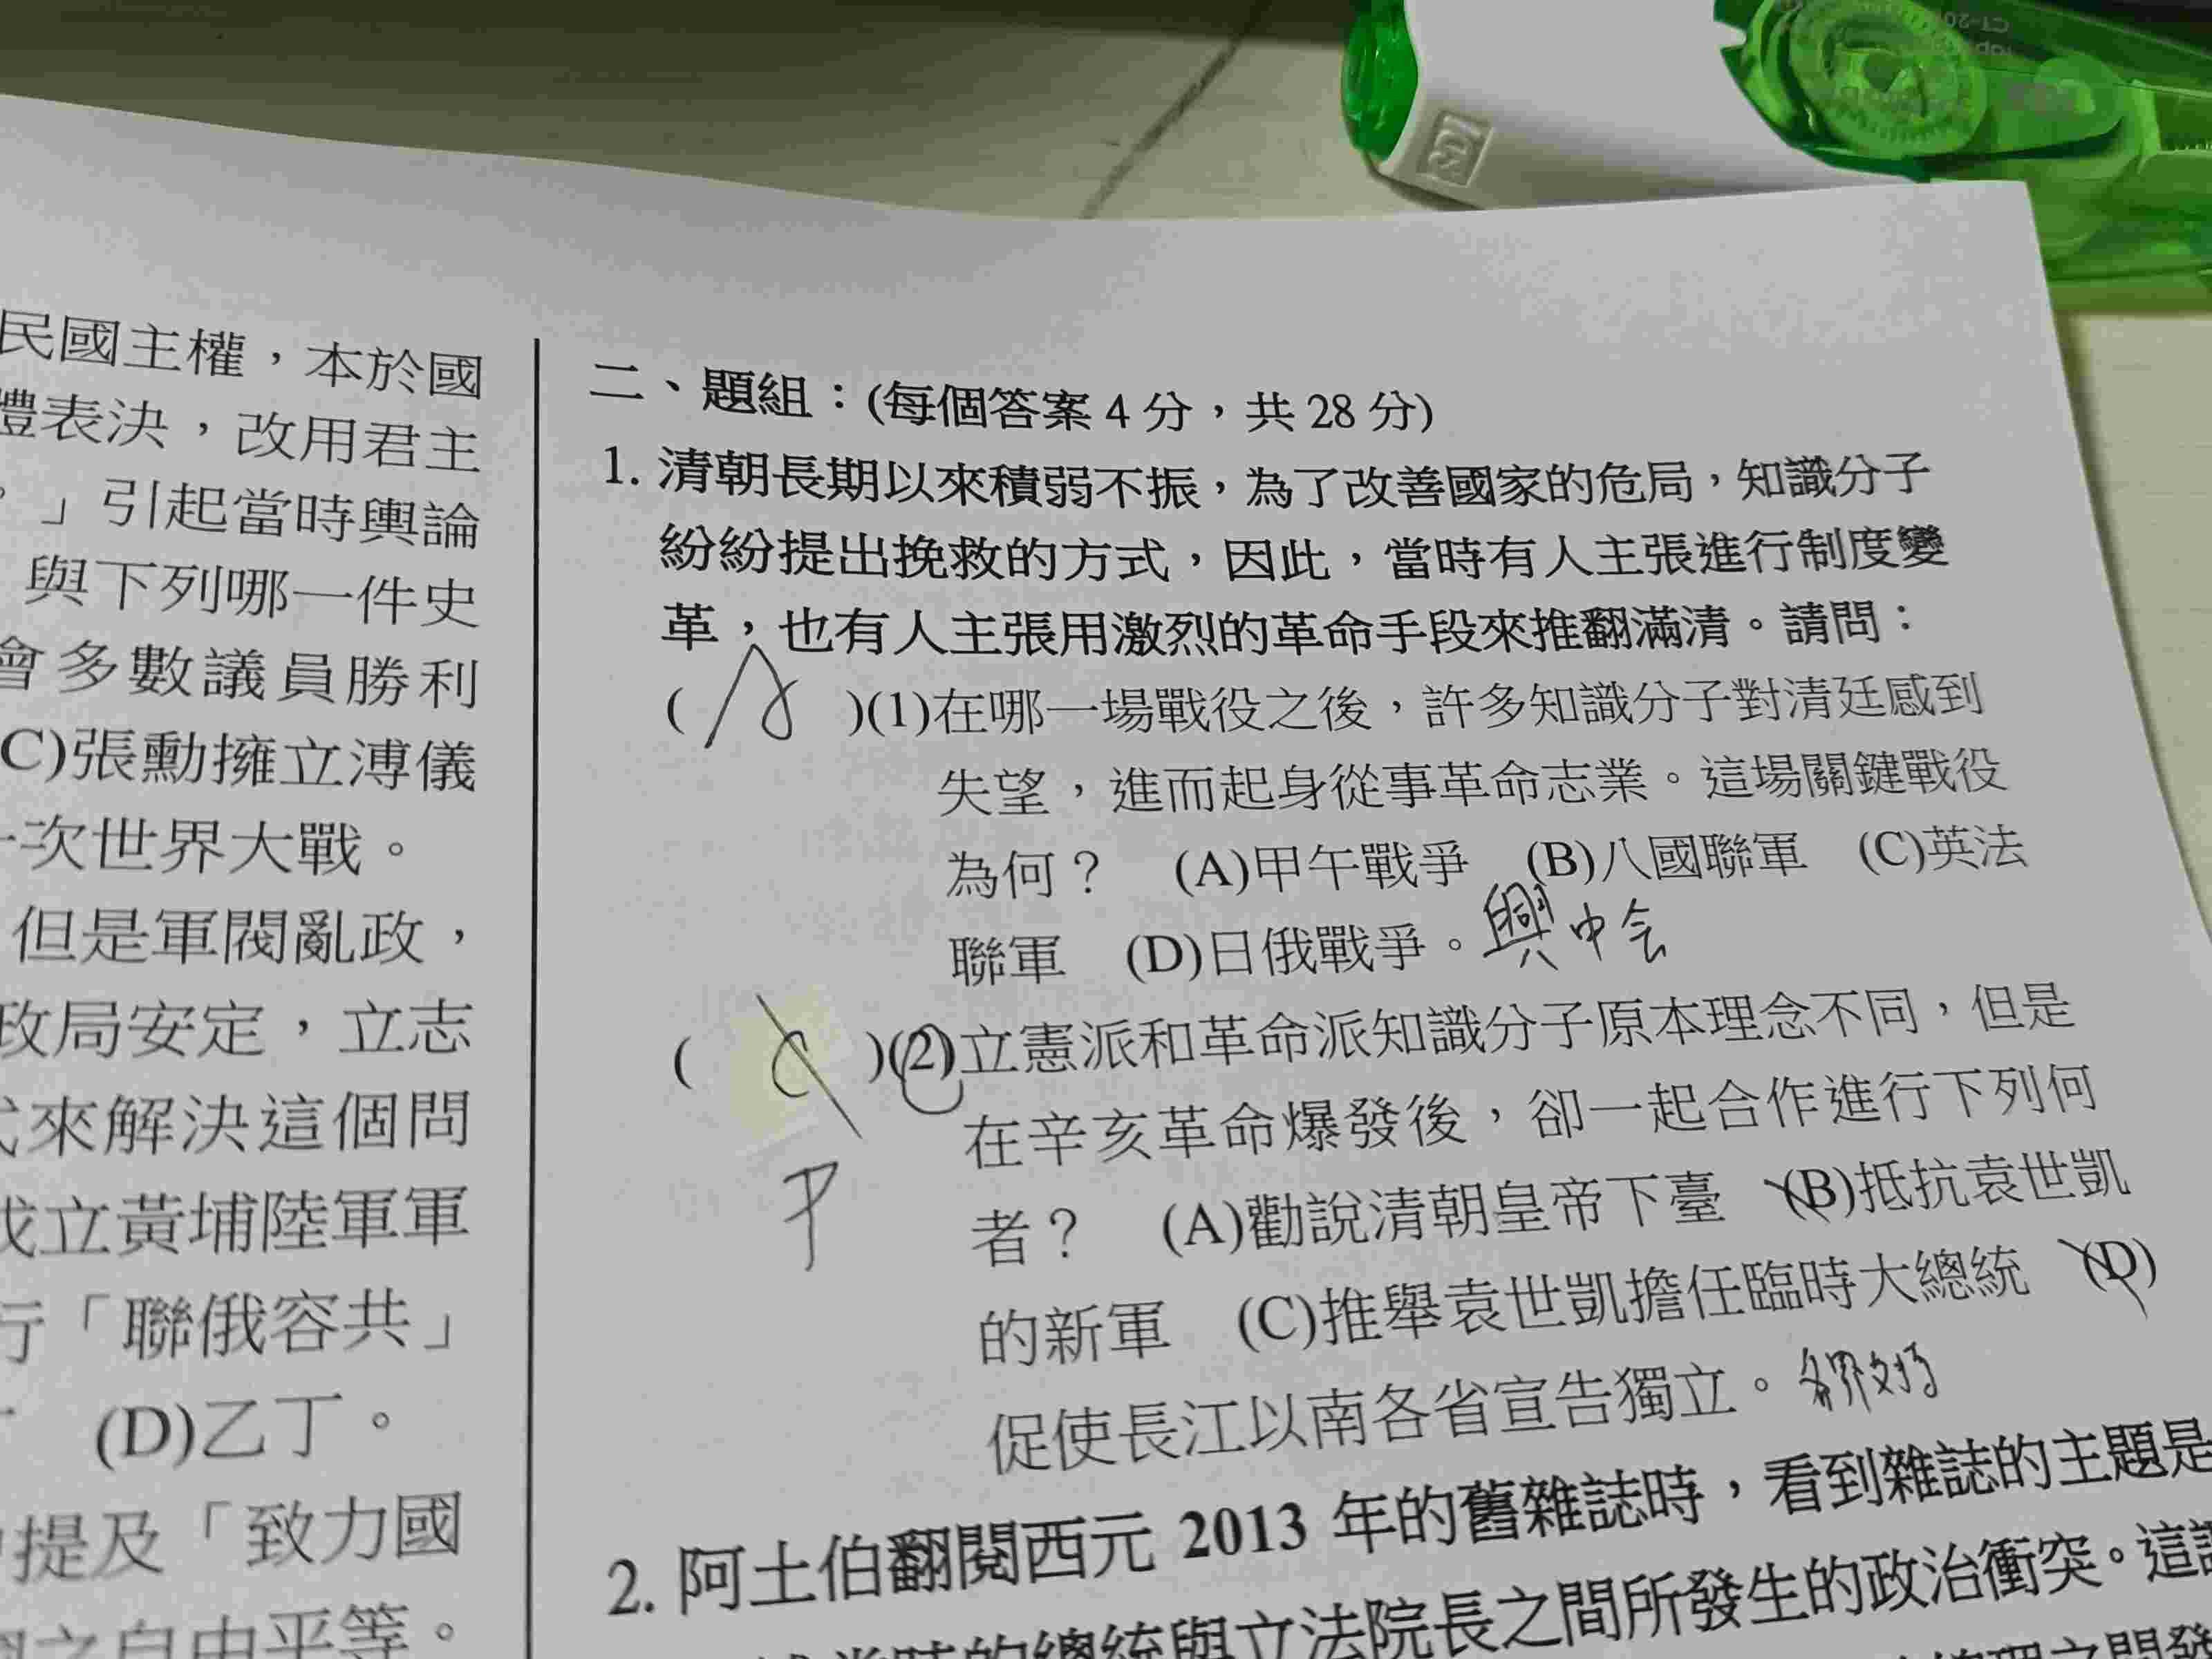 民國主權，本於國
體表決，改用君主
。」引起當時輿論
與下列哪一件史
會多數議員勝利
(C)張勳擁立溥儀
一次世界大戰。
但是軍閥亂政，
政局安定，立志
式來解決這個問
成立黃埔陸軍軍
行「聯俄容共」
(D)乙丁。
提及「致力國
之自由平等。
二、題組：(每個答案 4 分，共 28 分)
1. 清朝長期以來積弱不振，為了改善國家的危局，知識分子
紛紛提出挽救的方式，因此，當時有人主張進行制度變
革，也有人主張用激烈的革命手段來推翻滿清。請問：
( A )(1)在哪一場戰役之後，許多知識分子對清廷感到
失望，進而起身從事革命志業。這場關鍵戰役
為何？ (A)甲午戰爭 (B)八國聯軍 (C)英法
聯軍 (D)日俄戰爭。興中会
( C )(2)立憲派和革命派知識分子原本理念不同，但是
在辛亥革命爆發後，卻一起合作進行下列何
者？ (A)勸說清朝皇帝下臺 (B)抵抗袁世凱
的新軍 (C)推舉袁世凱擔任臨時大總統 (D)
促使長江以南各省宣告獨立。
2. 阿土伯翻閱西元 2013 年的舊雜誌時，看到雜誌的主題是
當時的總統與立法院長之間所發生的政治衝突。這